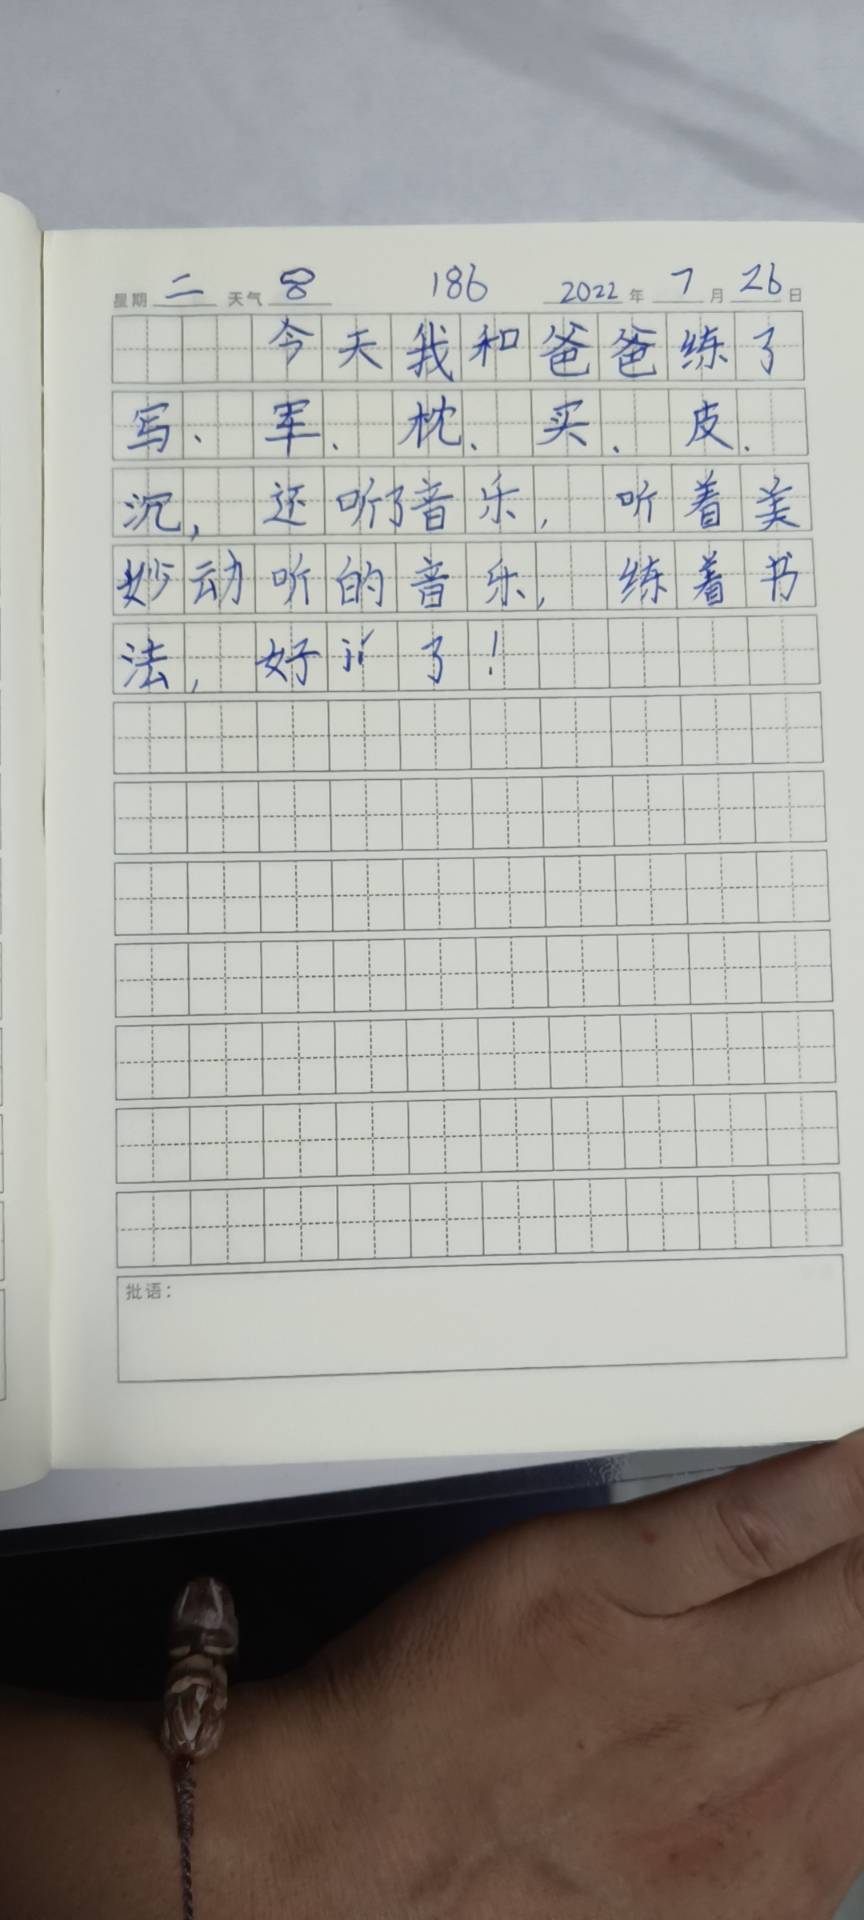 星期 二 天气 186 2022 年 7 月 26 日
今天我和爸爸练了
写、军、枕、买、皮、
沉，还听了音乐，听着美
妙动听的音乐，练着书
法，好 了！
批语：